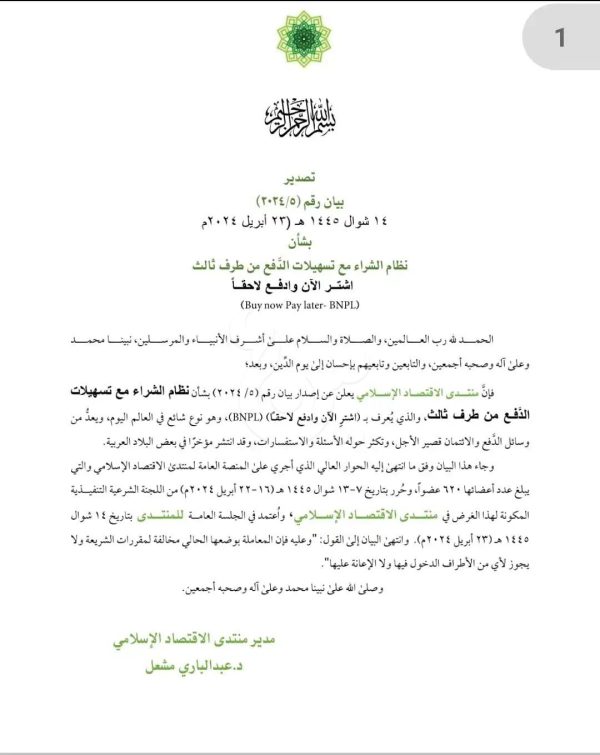 1
بسم الله الرحمن الرحيم
تصدير
بيان رقم (٢٠٢٤/٥)
١٤ شوال ١٤٤٥ هـ (٢٣ أبريل ٢٠٢٤م
بشأن
نظام الشراء مع تسهيلات الدَّفع من طرف ثالث
اشتر الآن وادفع لاحقاً
(Buy now Pay later- BNPL)
الحمد لله رب العالمين، والصلاة والسلام علىٰ أشرف الأنبياء والمرسلين، نبينا محمد
وعلىٰ آله وصحبه أجمعين، والتابعين وتابعيهم بإحسان إلىٰ يوم الدِّين، وبعد؛
فإنَّ منتدى الاقتصاد الإسلامي يعلن عن إصدار بيان رقم (٢٠٢٤/٥) بشأن نظام الشراء مع تسهيلات
الدَّفع من طرف ثالث، والذي يُعرف بـ (اشترِ الآن وادفع لاحقاً) (BNPL)، وهو نوع شائع في العالم اليوم، ويعدُّ من
وسائل الدَّفع والائتمان قصير الأجل، وتكثر حوله الأسئلة والاستفسارات، وقد انتشر مؤخرًا في بعض البلاد العربية.
وجاء هذا البيان وفق ما انتهىٰ إليه الحوار العالي الذي أجري علىٰ المنصة العامة لمنتدىٰ الاقتصاد الإسلامي والتي
يبلغ عدد أعضائها ٦٢٠ عضواً، وحُرر بتاريخ ٧-١٣ شوال ١٤٤٥ هـ (١٦-٢٢ أبريل ٢٠٢٤م) من اللجنة الشرعية التنفيذية
المكونة لهذا الغرض في منتدى الاقتصاد الإسلامي، وأعتمد في الجلسة العامة للمنتدى بتاريخ ١٤ شوال
١٤٤٥ هـ (٢٣ أبريل ٢٠٢٤م). وانتهىٰ البيان إلىٰ القول: "وعليه فإن المعاملة بوضعها الحالي مخالفة لمقررات الشريعة ولا
يجوز لأي من الأطراف الدخول فيها ولا الإعانة عليها".
وصلىٰ الله علىٰ نبينا محمد وعلىٰ آله وصحبه أجمعين.
مدير منتدى الاقتصاد الإسلامي
د.عبدالباري مشعل